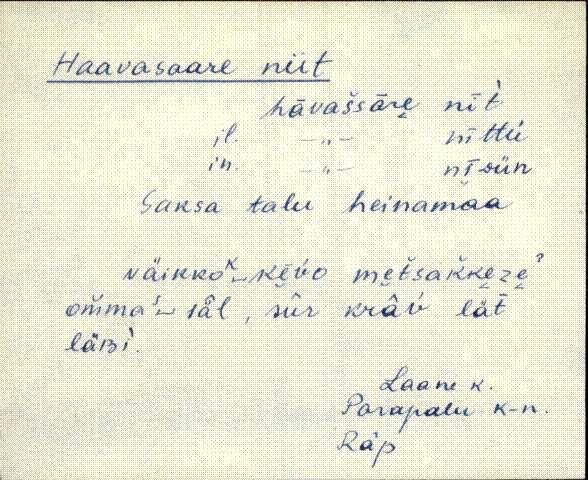 Haavasaare niit
hāvašsāre̬ nīt̀
il. –„– nīttú
in. –„– nīsün
Saksa talu heinamaa
väikkoᴷ‿kē̬v́o me̬t̆šakke̬ze̬ˀ
om̆maˢ‿sâl, sûr krâv́ lät̄
läʙì.
Laane k.
Parapalu k-n.
Räp